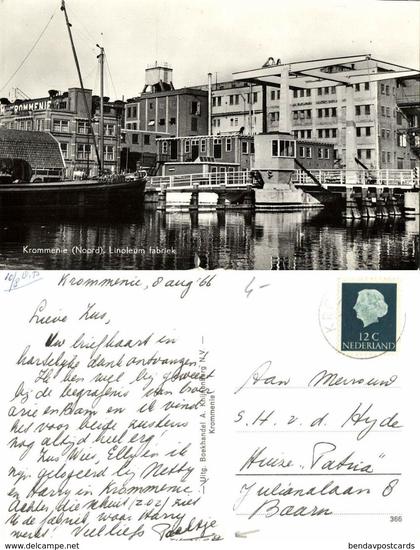 KROMMENIE
Krommenie (Noord), Linoleum fabriek
Krommenie, 8 aug '66
4-
Lieve Zus,
Uw briefkaart in
hartelijke dank ontvangen.
Ik ben wel bij geweest
bij de begrafenis van broer
Arie en Bam en ik vind
het voor beide zusters
nog altijd heel erg.
Zus Wies, Elly en ik
zijn gelogeerd bij Netty
en Harry in Krommenie.
Achter, die schuit (zoz) ziet
U de fabriek, waar Harry
werkt! Veel liefs
Uitg. Boekhandel A. Knijnenberg N.V. —
Krommenie
12 C
NEDERLAND
Aan Mevrouw
S. H. v. d. Hyde
Huize "Patria"
Julianalaan 8
Baarn
366
www.bendavpostcards.com
bendavpostcards.com